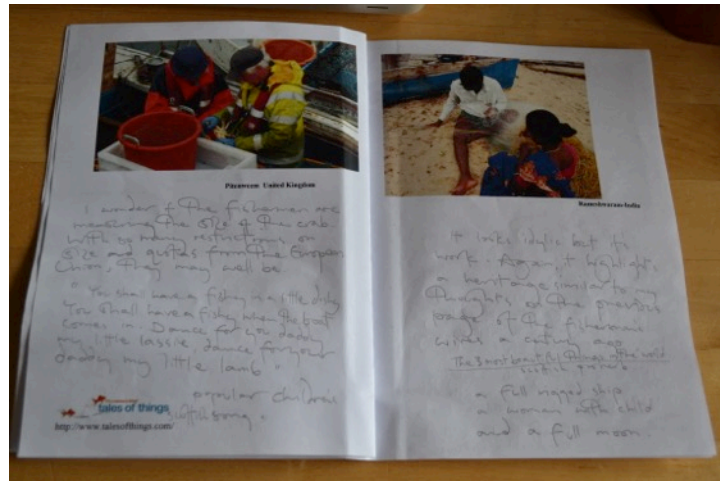 Pittenweem United Kingdom
I wonder if the fishermen are
measuring the size of the crab.
With so many restrictions on
size and quotas from the European
Union, they may well be.
" You shall have a fishy in a little dishy
You shall have a fishy when the boat
comes in. Dance for you daddy
my little lassie, dance for your
daddy my little lamb."
a popular children's
song.
tales of things
http://www.talesofthings.com/
Rameshwaram-India
It looks idyllic but its
work. Again, it highlights
a heritage similar to my
thoughts on the previous
page of the fishermans
wives a century ago
The 3 most beautiful things in the world
scottish proverb
a full rigged ship
a woman with child
and a full moon.